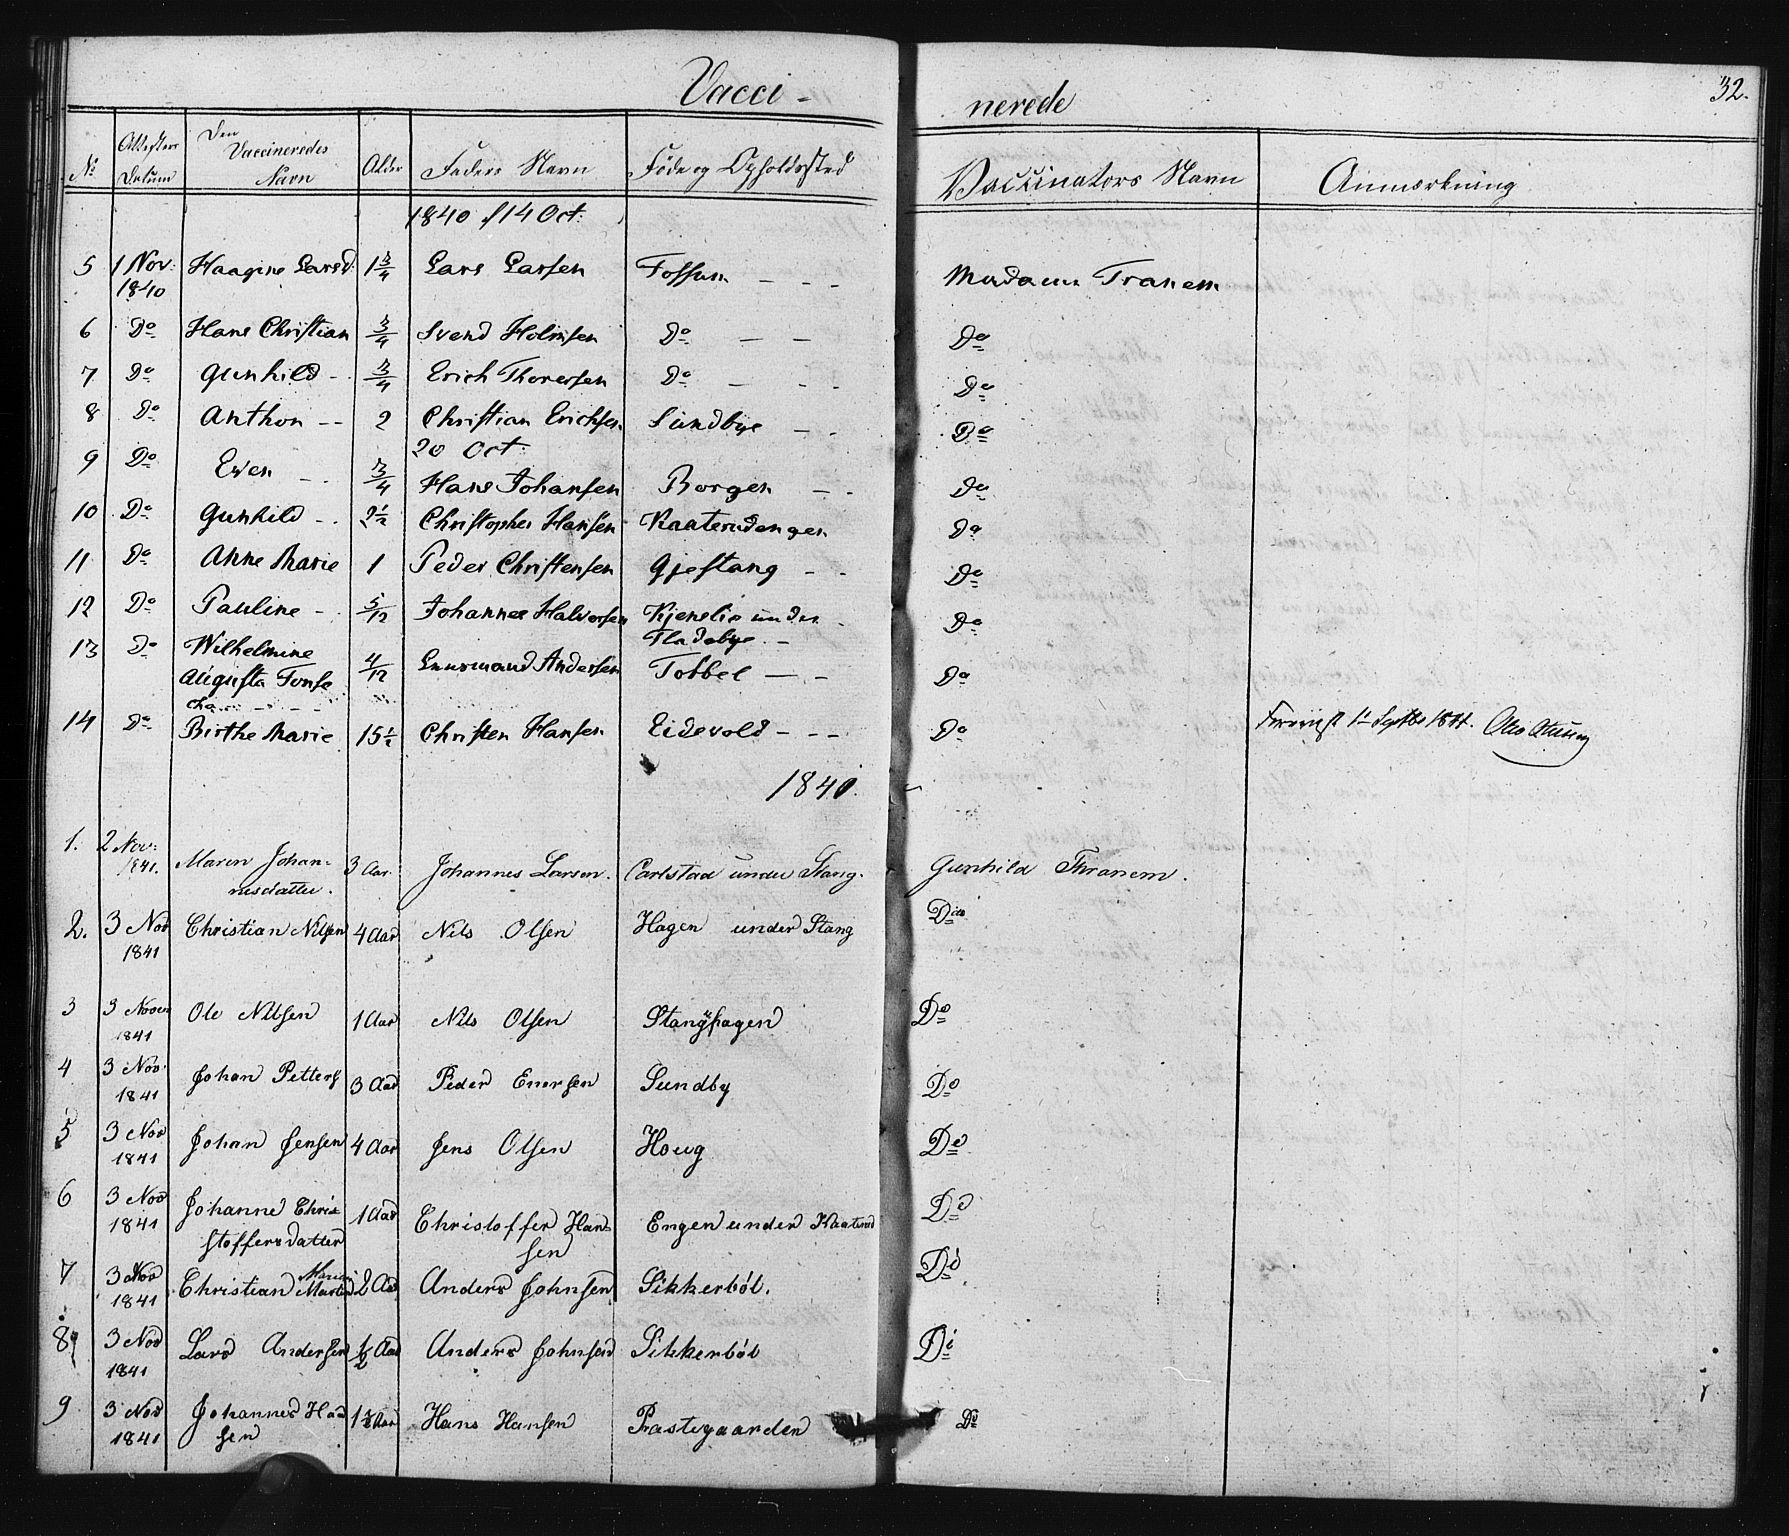 Vacci-
nerede
32.
No Attestens Datum Den Vaccineredes Navn Alder Faders Navn Føde og Opholdssted Vaccinators Navn Anmærkning
1840 14 Oct:
5 1 Nov: 1840 Haagine Larsd: 1 3/4 Lars Larsen Fossum - - - Madame Tranem
6 Do Hans Christian 3/4 Svend Holmsen Do - - Do
7 Do Gunhild - 3/4 Erich Thoresen Do - - - Do
8 Do Anthon - - 2 Christian Erichsen Sundbye - - Do
20 Oct:
9 Do Even - - 3/4 Hans Johansen Borgen - - Do
10 Do Gunhild - 2 1/2 Christopher Hansen Kaaterudengen Do
11 Do Anne Marie 1 Peder Christensen Gjestang - - Do
12 Do Pauline - 5/12 Johannes Halvorsen Kjenslie under Fladebye - Do
13 Do Wilhelmine Augusta 4/12 Andersen Tobbel - - Do
14 Do Birthe Marie 15 1/2 Christen Hansen Eidsvold - - - Do
1841.
1. 2 Nov: 1841. Maren Johan-
nesdatter. 3 Aar. Johannes Larsen. Carlstad under Stang. Gunhild Thranem.
2. 3 Nov 1841 Christian Nilsen 4 Aar Nils Olsen Hagen under Stang Dito
3 3 Novem 1841 Ole Nilsen 1 Aar Nils Olsen Stangshagen Do
4 3 Nov. 1841 Johan Petters 3 Aar Peder Enersen Sundby Do
5 3 Nov 1841 Johan Jensen 4 Aar Jens Olsen Houg Do
6 3 Nov 1841 Johanne Chris-
stoffersdatter 1 Aar Christoffer Han-
sen Engen under Kaaterud Do
7 3 Nov 1841 Christian Martin 2 Aar Anders Johnsen Sikkerböl. Do
8 3 Nov 1841 Lars Andersen 1/2 Aar Anders Johnsen Sikkerböl Do
9 3 Nov 1841 Johannes Han
sen 1 1/2 Aar Hans Hansen Prastegaarden Do